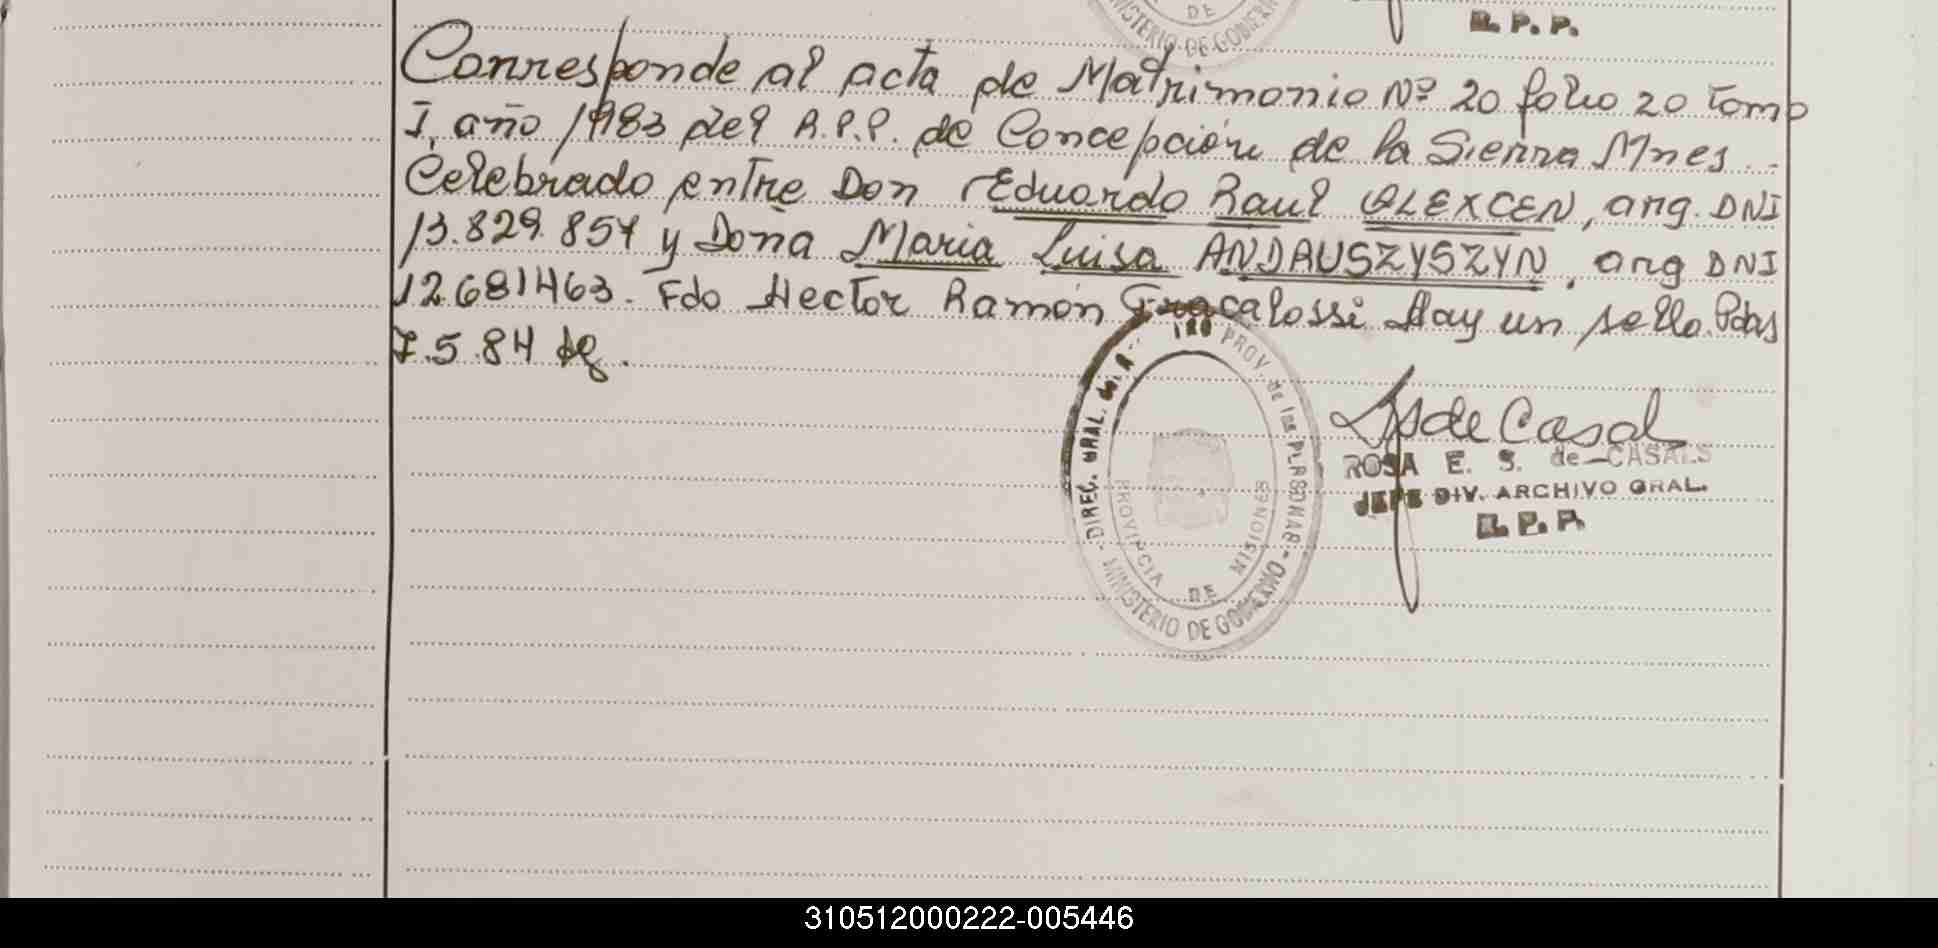 DE
MINISTERIO DE GOBIERNO
R. P. P.
Corresponde al acta de Matrimonio Nº 20 folio 20 Tomo
I, año 1983 del R.P.P. de Concepción de la Sierra Mnes.
Celebrado entre Don Eduardo Raul OLEXCEN, arg. DNI
13.829.857 y Doña Maria Luisa ANDRUSZYSZYN, arg DNI
12.681463. Fdo Hector Ramón Fracalossi Hay un sello. Pdas
7.5.84
DIREC. GRAL. del R. PROV. de las PERSONAS
MINISTERIO DE GOBIERNO
PROVINCIA DE MISIONES
de Casal
ROSA E. S. de CASALS
JEFE DIV. ARCHIVO GRAL.
R. P. P.
310512000222-005446